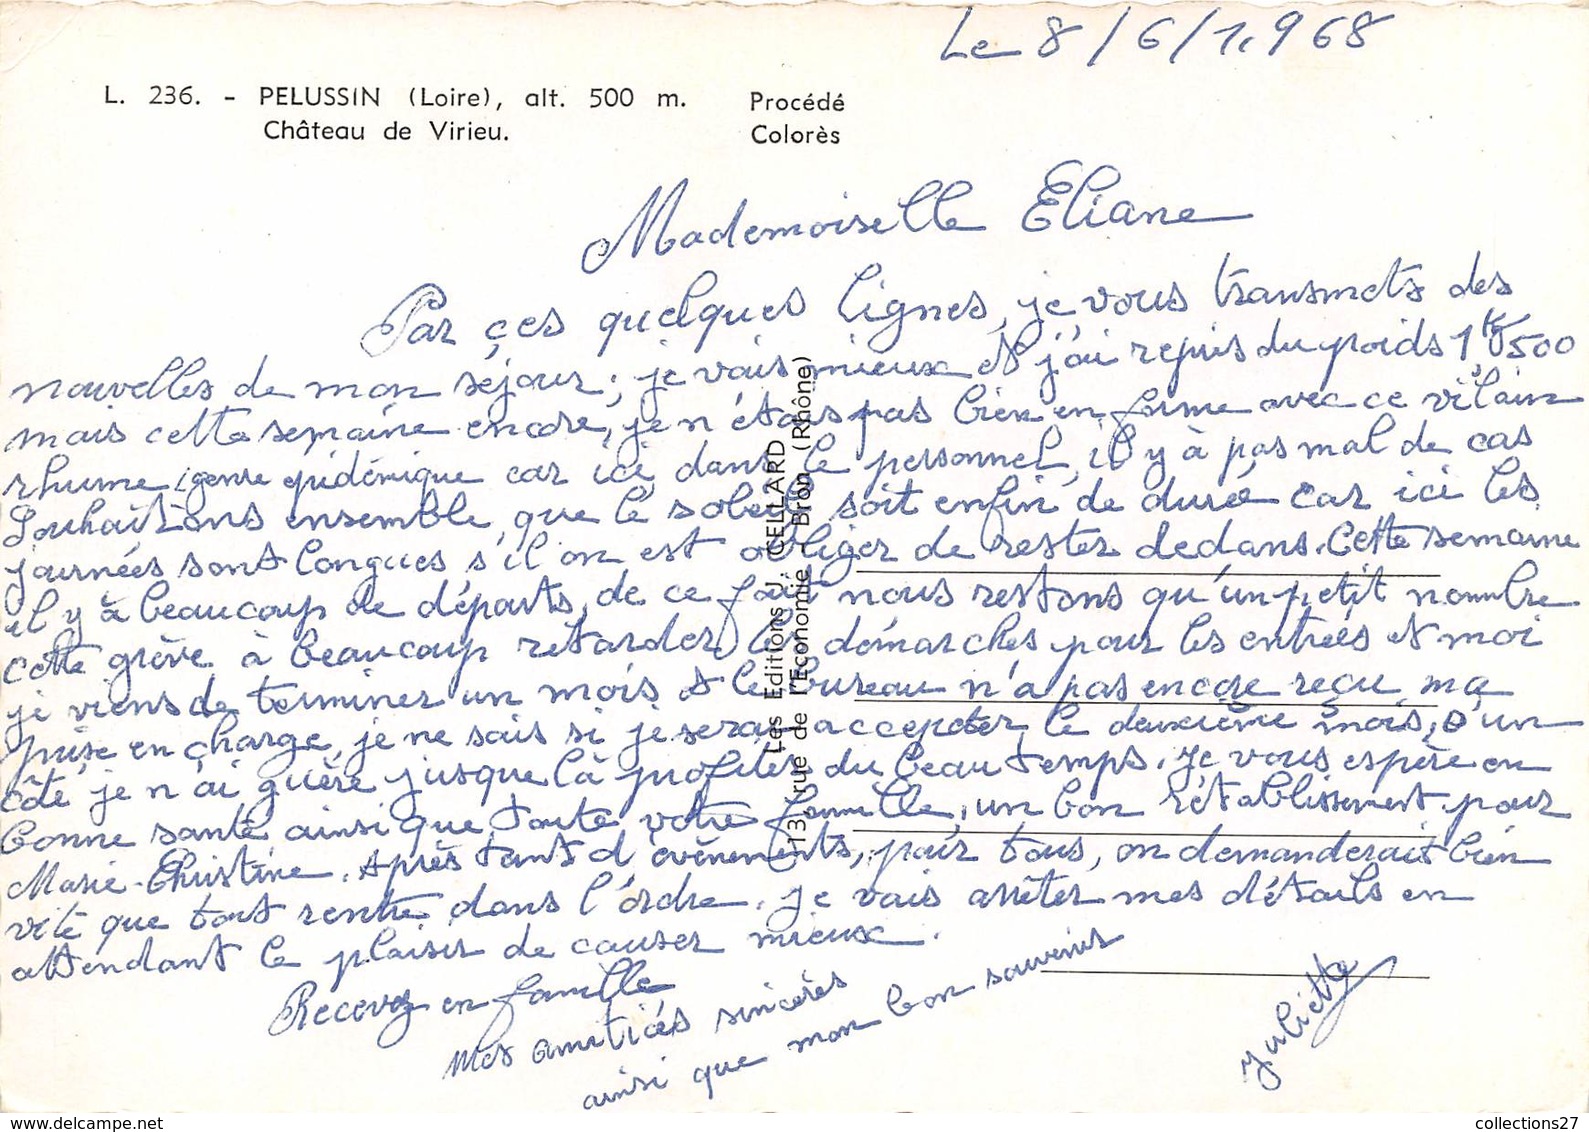 Le 8/6/1.968
L. 236. - PELUSSIN (Loire), alt. 500 m.
Château de Virieu.
Procédé
Colorès
Mademoiselle Eliane
Par ces quelques lignes, je vous transmets des
nouvelles de mon séjour; je vais mieux et j'ai repris du poids 1kg500
mais cette semaine encore, je n'étais pas bien en forme avec ce vilain
rhume, genre épidémique car ici, dans le personnel, il y à pas mal de cas
Souhaitons ensemble, que le soleil soit enfin de durée car ici les
journées sont longues s'il on est obliger de rester dedans. Cette semaine
il y à beaucoup de départs, de ce fait nous restons qu'un petit nombre
cette grève à beaucoup retarder les démarches pour les entrées et moi
je viens de terminer un mois et le bureau n'a pas encore reçu ma
prise en charge, je ne sais si je serai accepter le deuxième mois, d'un
côté je n'ai guère jusque là profiter du beau temps. Je vous espère en
bonne santé ainsi que toute votre famille, un bon rétablissement pour
Marie-Christine. Après tant d'évènements, pour tous, on demanderait bien
vite que tout rentre dans l'ordre. Je vais arrêter mes détails en
attendant le plaisir de causer mieux.
Recevez en famille
Mes amitiés sincères
ainsi que mon bon souvenir
Juliette
Les Editions J. CELLARD
(13) rue de l'Economie, Bron (Rhône)
www.delcampe.net
collections27